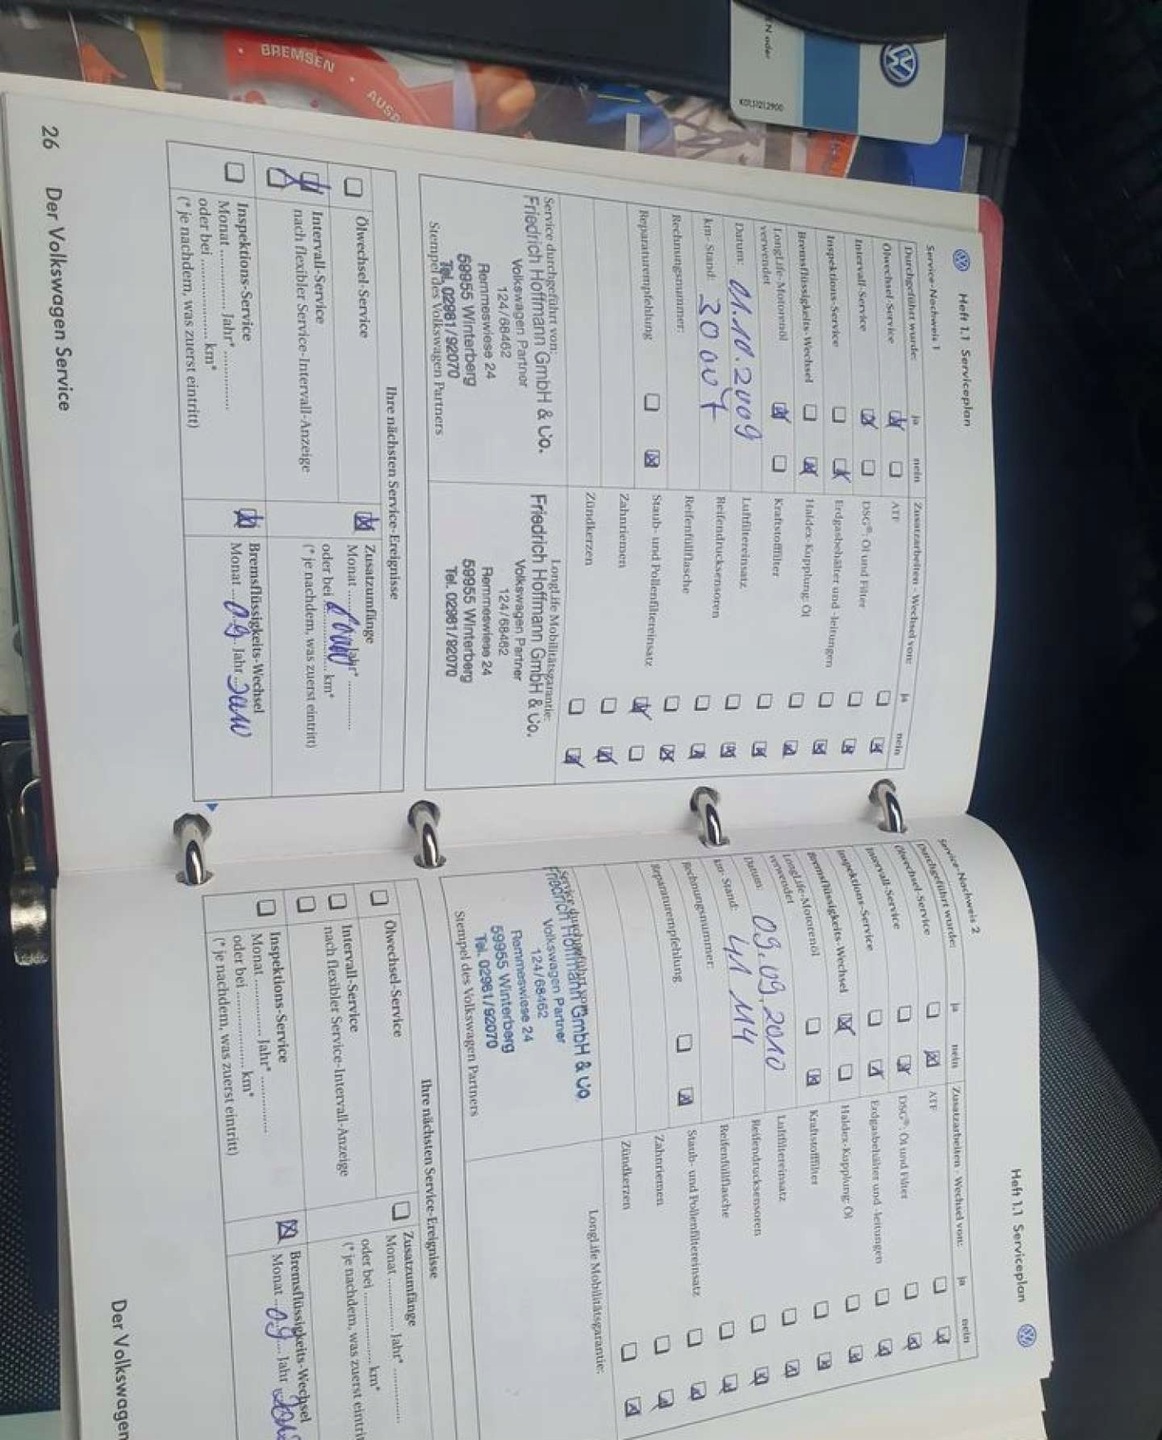 BREMSEN
AUSP
N oder
Heft 1.1 Serviceplan
Service-Nachweis 1
Durchgeführt wurde:
ja
nein
Ölwechsel-Service
Intervall-Service
Inspektions-Service
Bremsflüssigkeits-Wechsel
LongLife-Motorenöl
verwendet
Datum: 01.10.2009
km-Stand: 30 007
Rechnungsnummer:
Reparaturempfehlung
Zusatzarbeiten - Wechsel von:
ja
nein
ATF
DSG®: Öl und Filter
Erdgasbehälter und -leitungen
Haldex-Kupplung: Öl
Kraftstofffilter
Luftfiltereinsatz
Reifendrucksensoren
Reifenfüllflasche
Staub- und Pollenfiltereinsatz
Zahnriemen
Zündkerzen
Service durchgeführt von:
Friedrich Hoffmann GmbH & Co.
Volkswagen Partner
124/68462
Remmeswiese 24
59955 Winterberg
Tel. 02981/92070
Stempel des Volkswagen Partners
LongLife Mobilitätsgarantie:
Friedrich Hoffmann GmbH & Co.
Volkswagen Partner
124/68462
Remmeswiese 24
59955 Winterberg
Tel. 02981/92070
Ihre nächsten Service-Ereignisse
Ölwechsel-Service
Intervall-Service
nach flexibler Service-Intervall-Anzeige
Inspektions-Service
Monat ............ Jahr* ............
oder bei ............ km*
(* je nachdem, was zuerst eintritt)
Zusatzumfänge
Monat ............ Jahr* ............
oder bei ............ km*
(* je nachdem, was zuerst eintritt)
Bremsflüssigkeits-Wechsel
Monat ... 09 Jahr
26 Der Volkswagen Service
Heft 1.1 Serviceplan
Service-Nachweis 2
Durchgeführt wurde:
ja
nein
Ölwechsel-Service
Intervall-Service
Inspektions-Service
Bremsflüssigkeits-Wechsel
LongLife-Motorenöl
verwendet
Datum: 09.09.2010
km-Stand: 41 114
Rechnungsnummer:
Reparaturempfehlung
Zusatzarbeiten - Wechsel von:
ja
nein
ATF
DSG®: Öl und Filter
Erdgasbehälter und -leitungen
Haldex-Kupplung: Öl
Kraftstofffilter
Luftfiltereinsatz
Reifendrucksensoren
Reifenfüllflasche
Staub- und Pollenfiltereinsatz
Zahnriemen
Zündkerzen
Service durchgeführt von:
Friedrich Hoffmann GmbH & Co.
Volkswagen Partner
124/68462
Remmeswiese 24
59955 Winterberg
Tel. 02981/92070
Stempel des Volkswagen Partners
LongLife Mobilitätsgarantie:
Ihre nächsten Service-Ereignisse
Ölwechsel-Service
Intervall-Service
nach flexibler Service-Intervall-Anzeige
Inspektions-Service
Monat ............ Jahr* ............
oder bei ............ km*
(* je nachdem, was zuerst eintritt)
Zusatzumfänge
Monat ............ Jahr* ............
oder bei ............ km*
(* je nachdem, was zuerst eintritt
Bremsflüssigkeits-Wechsel
Monat ... 09 ... Jahr
Der Volkswagen